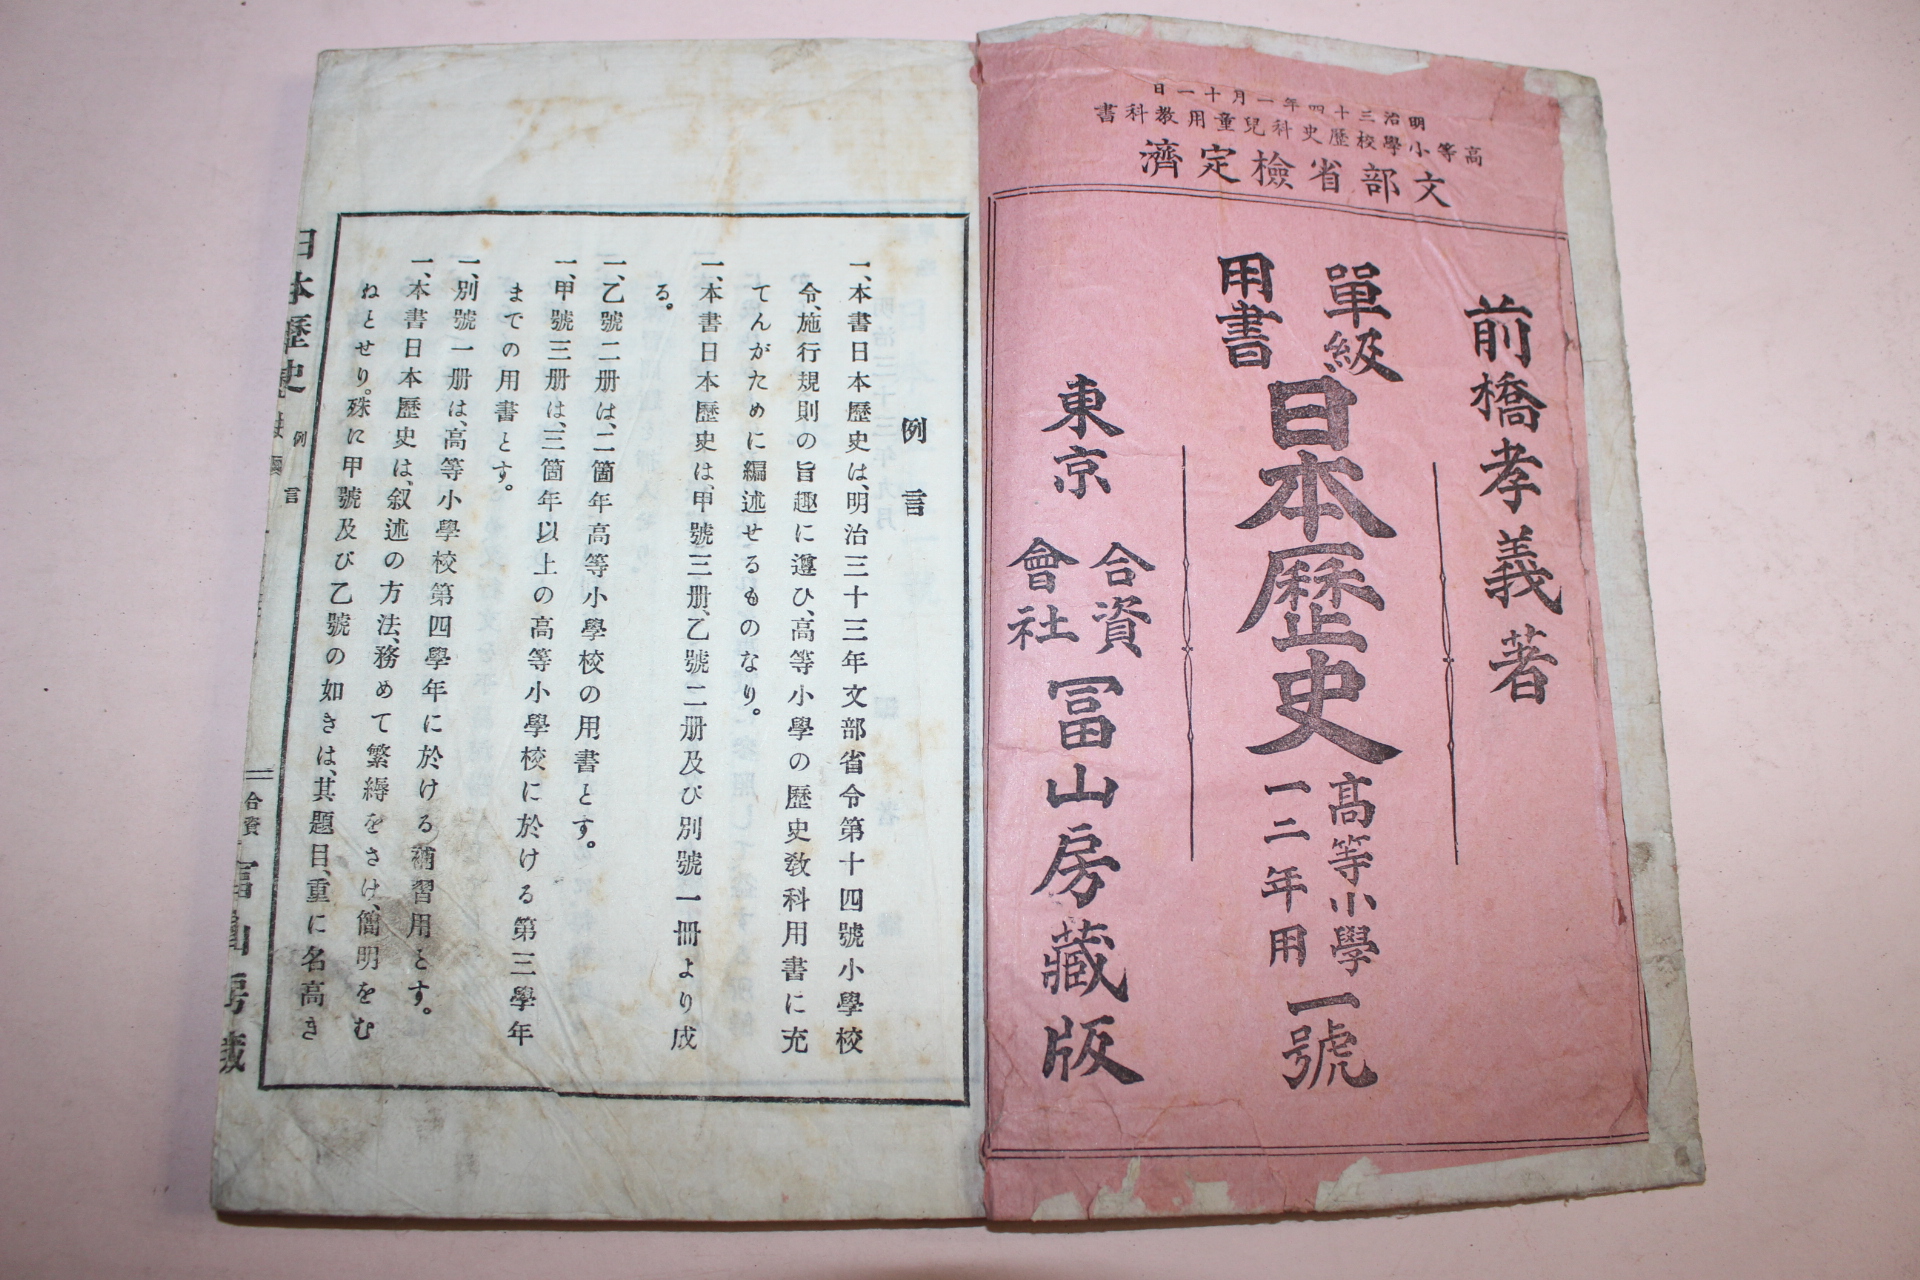 明治三十四年一月十一日
高等小學校歷史科兒童用教科書
文部省檢定濟
前橋孝義著
單級
用書
日本歷史
高等小學
一二年用
一號
東京
合資
會社
冨山房藏版
例言
一、本書日本歷史は、明治三十三年文部省令第十四號小學校
令施行規則の旨趣に遵ひ、高等小學の歷史敎科用書に充
てんがために編述せるものなり。
一、本書日本歷史は、甲號三册、乙號二册及び別號一冊より成
る。
一、乙號二册は、二箇年高等小學校の用書とす。
一、甲號三册は、三箇年以上の高等小學校に於ける第三學年
までの用書とす。
一、別號一册は、高等小學校第四學年に於ける補習用とす。
一、本書日本歷史は、叙述の方法、務めて繁縟をさけ、簡明をむ
ねとせり。殊に甲號及び乙號の如きは、其題目、重に名高き
日本歷史
例言
合資
富山房藏